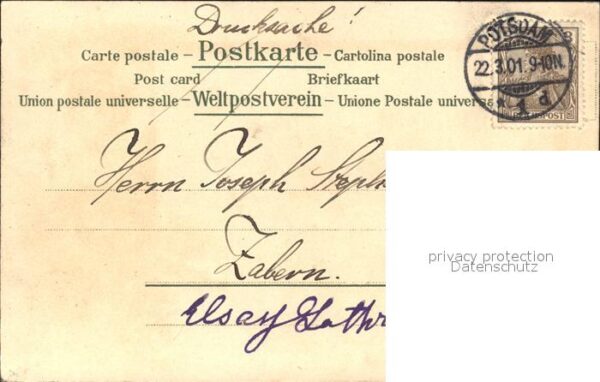 Drucksache!
Carte postale – Postkarte – Cartolina postale
Post card Briefkaart
Union postale universelle – Weltpostverein – Unione Postale univers
POTSDAM
22.3.01. 9-10N.
1 d
Herrn Joseph
Zabern.
Elsaß Lothr
privacy protection
Datenschutz